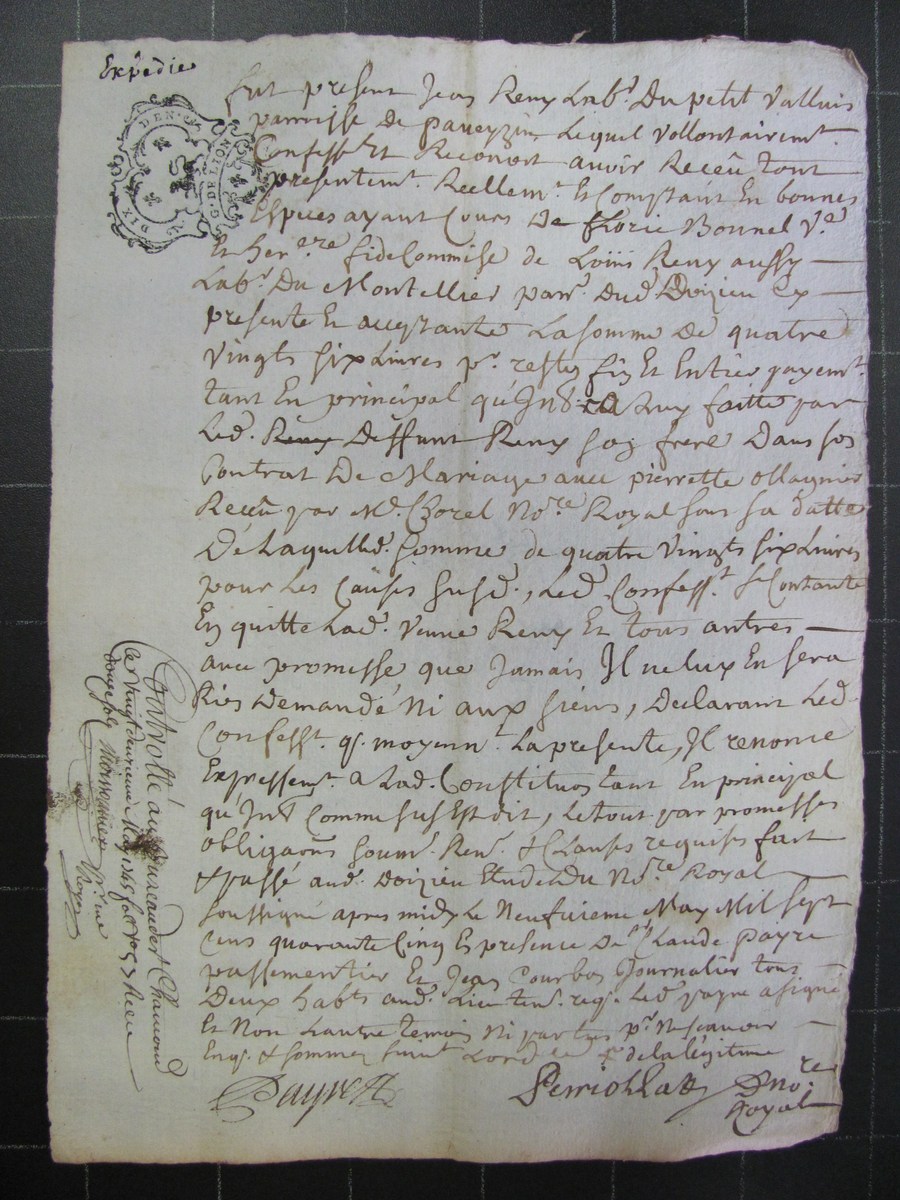 Expedie
DIX DEN.
G. DE LION
fut present Jean Remy Lab.r Du petit Valluis
parroisse De paveyzin Lequel Vollontairem.t
Confess.t Et Reconoit avoir Receu tout
presentem.t Reellem.t Et Comptant En bonnes
Espices ayant Cours De florie Bonnel V.e
Et her.ere fideCommise de Loüis Remy aussy
Lab.r Du Montellier parr.e Dud. Doizieu Ex
presente Et acceptante La somme De quatre
vingts six Livres p.r reste, fin Et Entier payem.t
tant En principal qu'
faitte par
Led. Remy Deffunt Remy son frere Dans son
Contrat De Mariage avec pierrette ollagnier
Receu par M.e Chorel No.re Royal sous sa Datte
De Laquelle d. somme de quatre vingts six Livres
pour Les Causes susd., Led. Confess.t se Contante
En quitte Lad. veuve Remy Et tous autres
avec promesse que Jamais Il ne luy En sera
Rien Demandé Ni aux siens, Declarant Led.
Confess.t q. moyenn.t La presente, Il renonce
Expressem.t a Lad. Constitu.on tant En principal
qu'Int. Comme sus Est dit, Le tout par promesses
obligaons soum. Ren.
& Clauses requises fait
& passé aud. Doizieu Etude Du No.re Royal
soussigné apres midy Le Neufvieme May Mil sept
cens quarante Cinq En presence De s.r Claude payre
passementier Et Jean Courbon Journalier tous
Deux habts aud. Lieu tem. req. Led. payre a signé
Et Non L'autre temoin Ni parties p.r Ne scavoir
Enq. & sommez suiv.t L'ord.ce
de la légitime
Payre
Perriollat No.re
Royal
Controllé au Bureau de S.t Chamond
Ce vingt deuxieme May 1745
Receu
douze sols